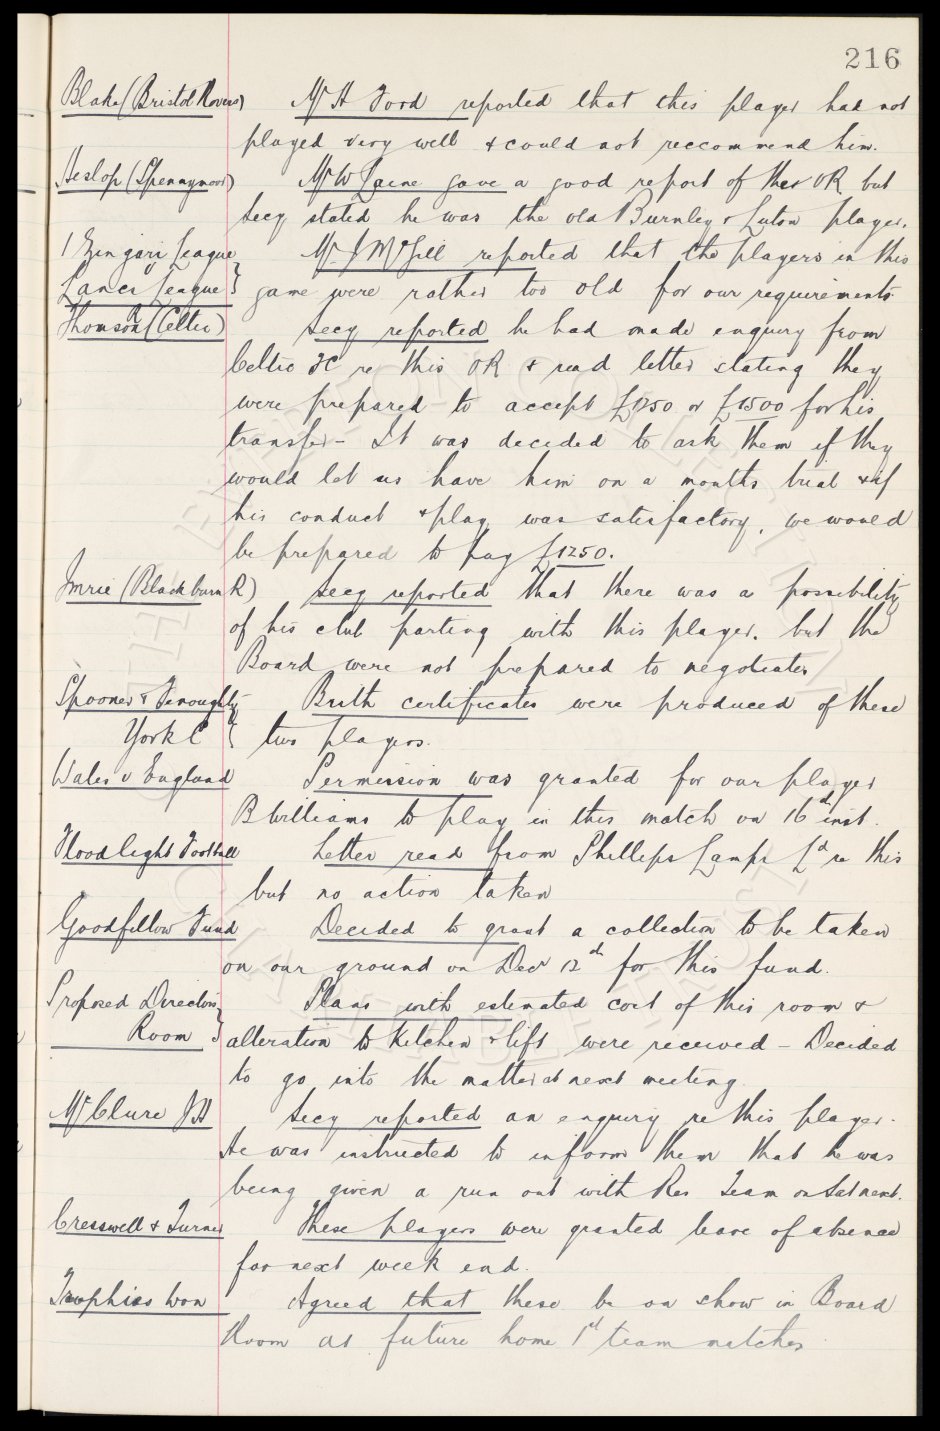 216
Blake (Bristol Rovers) Mr H Ford reported that this player had not
played very well & could not reccommend him.
Heslop (Spennymoor) Mr W Laine gave a good report of this OR but
Secy stated he was the old Burnley & Luton player.
I Zingari League Mr J McGill reported that the players in this
Lancs League } game were rather too old for our requirements
Thomson R (Celtic) Secy reported he had made enquiry from
Celtic FC re this OR & read letter stating they
were prepared to accept £1750 or £1500 for his
transfer - It was decided to ask them if they
would let us have him on a months trial & if
his conduct & play was satisfactory, we would
be prepared to pay £1250.
Imrie (Blackburn R) Secy reported that there was a possibility
of his club parting with this player, but the
Board were not prepared to negotiate
Spooner & Fenoughty Birth certificates were produced of these
York C } two players.
Wales v England Permission was granted for our player
B Williams to play in this match on 16th inst.
Floodlight Football Letter read from Phillips Lamps Ld re this
but no action taken
Goodfellow Fund Decided to grant a collection to be taken
on our ground on Decr 12th for this fund.
Proposed Directors Plans with estimated cost of this room &
Room } alteration to Kitchen & lift were received - Decided
to go into the matter at next meeting.
McClure JH Secy reported an enquiry re this player.
He was instructed to inform them that he was
being given a run out with Res Team on Sat next.
Cresswell & Turner These players were granted leave of absence
for next week end.
Trophies won Agreed that these be on show in Board
Room at future home 1st team matches